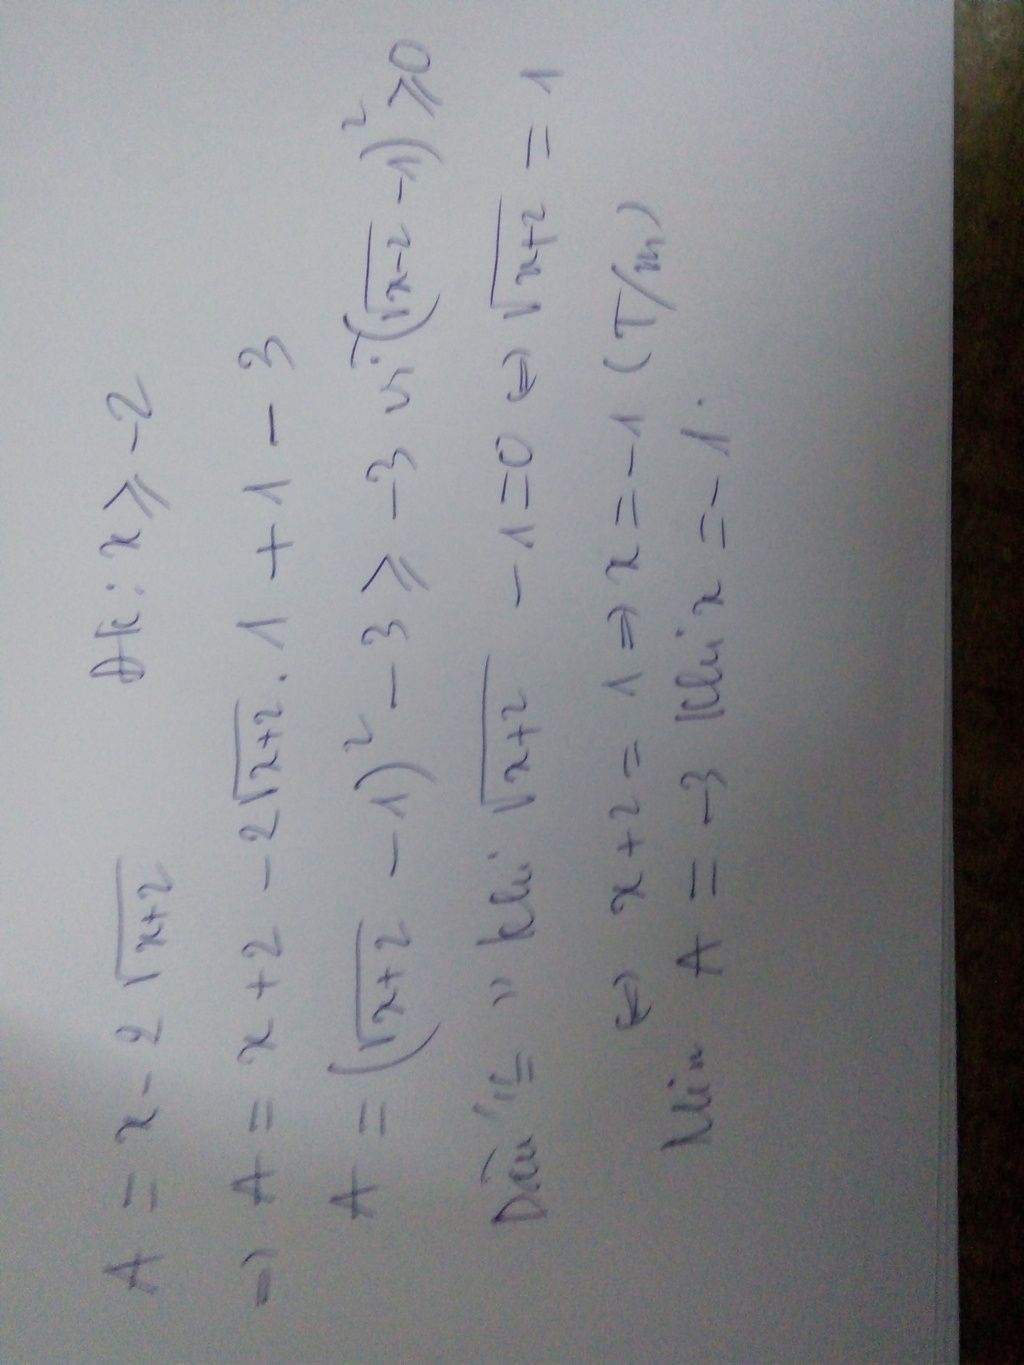 A = x - 2 √x+2 Đk: x ≥ -2
⇒ A = x + 2 - 2√x+2 . 1 + 1 - 3
A = (√x+2 - 1)² - 3 ≥ -3 vì (√x-2 - 1)² ≥ 0
Dấu "=" khi √x+2 - 1 = 0 ⇔ √x+2 = 1
⇔ x + 2 = 1 ⇒ x = -1 (T/m)
Min A = -3 khi x = -1.